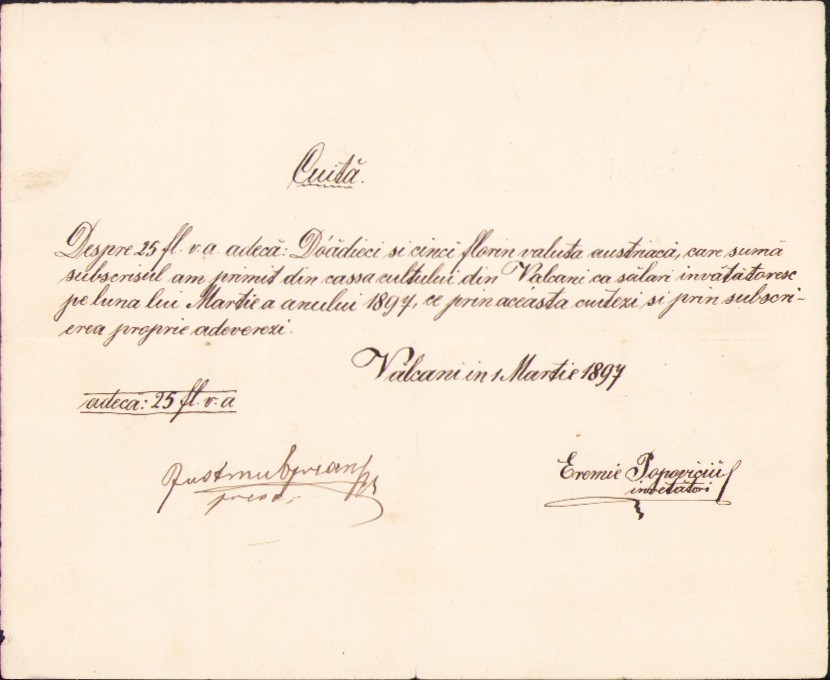 Cuită.
Despre 25 fl. v. a. adecă: Dóădieci si cinci florin valuta austriacă, care sumă
subscrisul am primit din cassa cultului din Valcani ca sălari invătătoresc
pe luna lui Martie a anului 1897, ce prin aceasta cuitezi si prin subscri-
erea proprie adeverezi.
Vălcani in 1 Martie 1897
adecă: 25 fl. v. a
Eremie Popoviciŭ
invetători